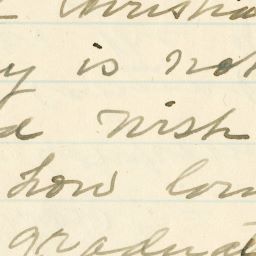 Christia
y is not
d wish
how lon
graduat